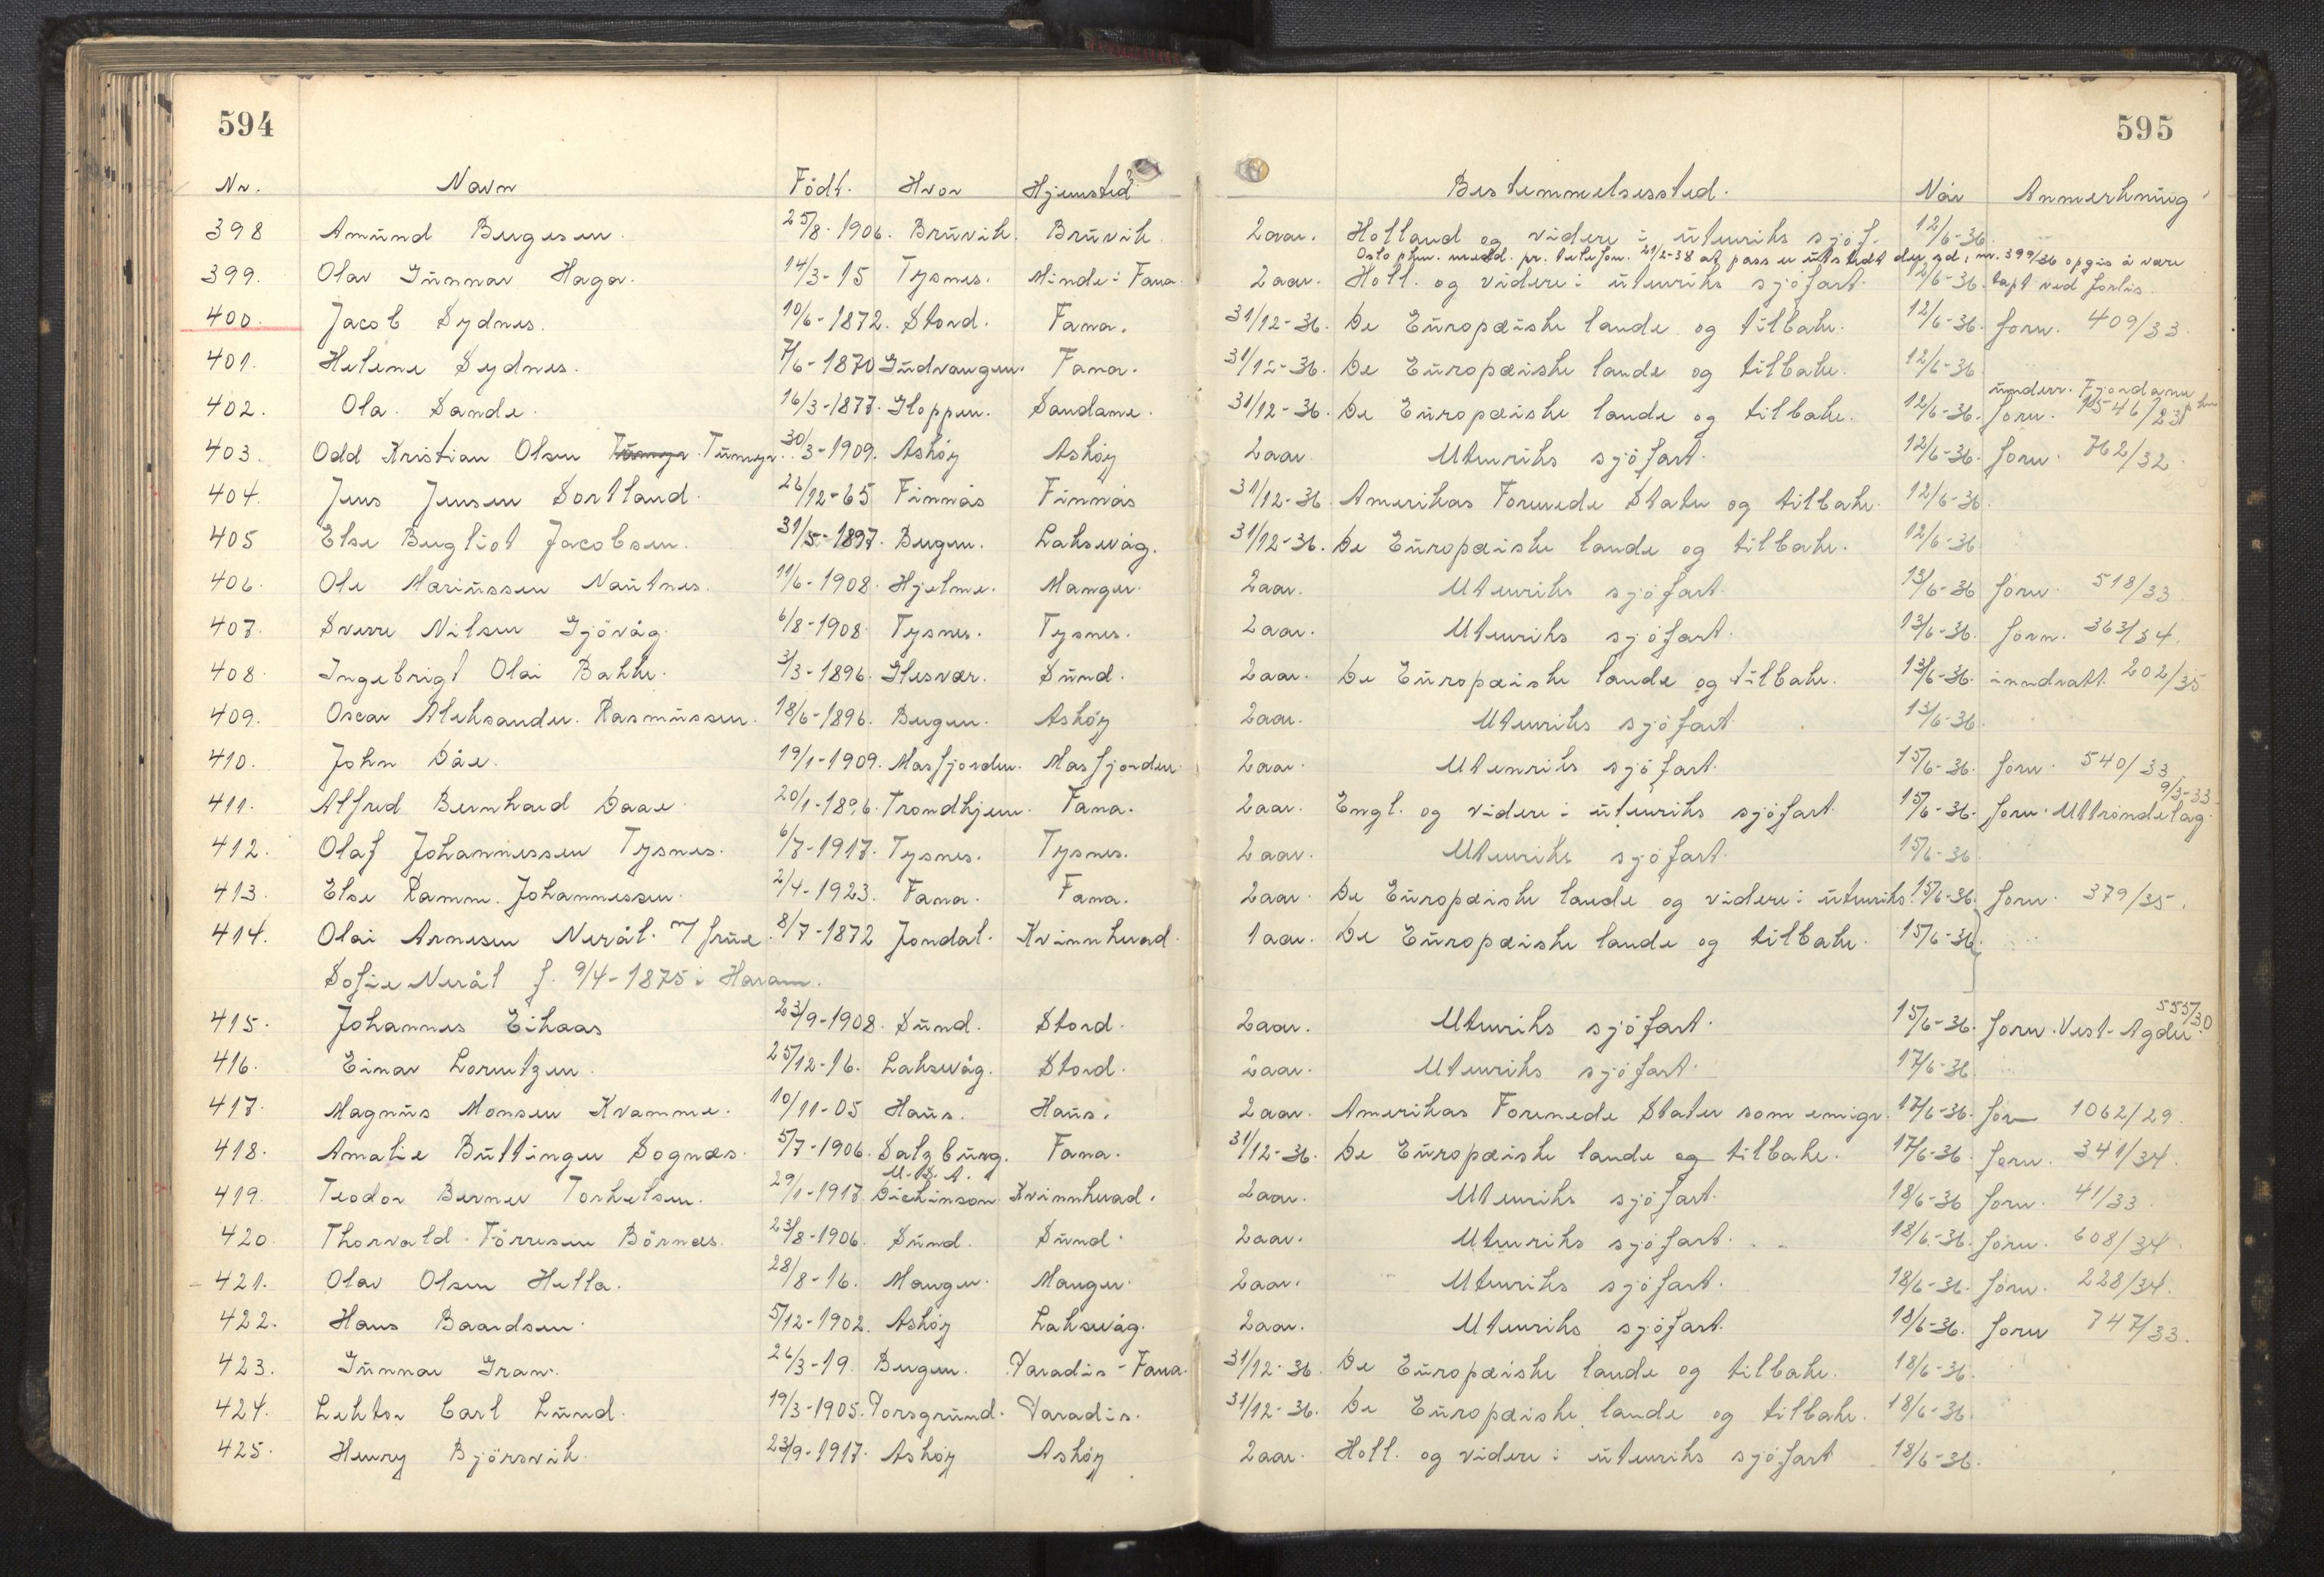 594
595
Nr. Navn Födt. Hvor Hjemsted Bestemmelsessted. Når Anmerkning
398 Amund Bergesen. 25/8-1906. Bruvik. Bruvik 2 aar. Holland og videre i utenriks sjöf. 12/6-36.
Oslo pkm. medd. pr. telefon. 21/2-38 at pass er utstedt der sd. nr. 399/36 opgis å være
399. Olav Gunnar Haga. 14/3-15 Tysnes. Minde i Fana. 2 aar. Holl. og videre i utenriks sjöfart. 12/6-36. tapt ved forlis.
400. Jacob Sydnes. 10/6-1872. Stord. Fana. 31/12-36. De Europæiske lande og tilbake. 12/6-36. forn. 409/33.
401. Helene Sydnes. 7/6-1870 Gudvangen. Fana. 31/12-36. De Europæiske lande og tilbake. 12/6-36
underr. Fjordane pkm
402. Ola Sande. 16/3-1877. Gloppen. Sandane. 31/12-36. De Europæiske lande og tilbake. 12/6-36. forn. 1546/23
403. Odd Kristian Olsen Tunnga Tunnga. 30/3-1909. Askøy Askøy 2 aar Utenriks sjöfart. 12/6-36. forn. 762/32.
404. Jens Jensen Sortland. 26/12-65 Finnås Finnås 31/12-36 Amerikas Forenede Stater og tilbake. 12/6-36.
405 Else Bergliot Jacobsen. 31/5-1897. Bergen. Laksevåg. 31/12-36. De Europæiske lande og tilbake. 12/6-36
406. Ole Mariussen Nautnes. 11/6-1908. Hjelme. Manger. 2 aar. Utenriks sjöfart. 13/6-36 forn. 518/33
407. Sverre Nilsen Gjövåg. 6/8-1908. Tysnes. Tysnes. 2 aar. Utenriks sjöfart. 13/6-36. forn. 363/34.
408. Ingebrigt Olai Bakke. 3/3-1896. Glesvær. Sund. 2 aar. De Europæiske lande og tilbake. 13/6-36. inndratt. 202/35
409. Oscar Aleksander Rasmussen. 18/6-1896. Bergen. Askøy 2 aar. Utenriks sjöfart 13/6-36.
410. John Dåe. 19/1-1909. Masfjorden. Masfjorden 2 aar. Utenriks sjöfart. 15/6-36. forn. 540/33
9/3-33.
411. Alfred Bernhard Daae. 20/1-1896. Trondhjem. Fana. 2 aar. Engl. og videre i utenriks sjöfart. 15/6-36. forn. Uttröndelag.
412. Olaf Johannessen Tysnes. 6/7-1917. Tysnes. Tysnes. 2 aar. Utenriks sjöfart. 15/6-36.
413. Else Ramm Johannessen. 2/4-1923. Fana. Fana. 2 aar. De Europæiske lande og videre i utenriks. 15/6-36. forn. 379/35.
414. Olai Arnesen Nerål. m/ frue. 8/7-1872 Jondal. Kvinnherad. 1 aar. De Europæiske lande og tilbake. 15/6-36
Sofie Nerål f. 9/4-1875 i Haram.
555/30
415. Johannes Eikaas 23/9-1908. Sund. Stord. 2 aar. Utenriks sjöfart. 15/6-36. forn. Vest-Agder.
416. Einar Lorentzen. 25/12-16. Laksevåg. Stord. 2 aar. Utenriks sjöfart. 17/6-36
417. Magnus Monsen Kvamme. 10/11-05 Haus. Haus. 2 aar. Amerikas Forenede Stater som emigr. 17/6-36. for 1062/29.
418. Amalie Buttinger Sognæs. 5/7-1906. Salzburg. Fana. 31/12-36. De Europæiske lande og tilbake. 17/6-36 forn. 341/34.
U.S.A.
419. Teodor Berner Torkelsen. 29/1-1917. Dickinson Kvinnherad. 2 aar. Utenriks sjöfart. 18/6-36 forn. 41/33.
420 Thorvald Förresen Börnæs. 23/8-1906. Sund. Sund. 2 aar. Utenriks sjöfart. 18/6-36. forn. 608/34
421. Olav Olsen Hella. 28/8-16. Manger. Manger. 2 aar. Utenriks sjöfart. 18/6-36. forn. 228/34.
422. Hans Baardsen. 5/12-1902. Askøy Laksevåg. 2 aar. Utenriks sjöfart. 18/6-36. forn 747/33.
423. Gunnar Gran. 26/3-19. Bergen. Paradis - Fana. 31/12-36. De Europæiske lande og tilbake. 18/6-36.
424. Lektor Carl Lund. 19/3-1905. Porsgrund. Paradis. 31/12-36. De Europæiske lande og tilbake. 18/6-36
425. Henry Björsvik. 23/9-1917. Askøy Askøy 2 aar. Holl. og videre i utenriks sjöfart 18/6-36.